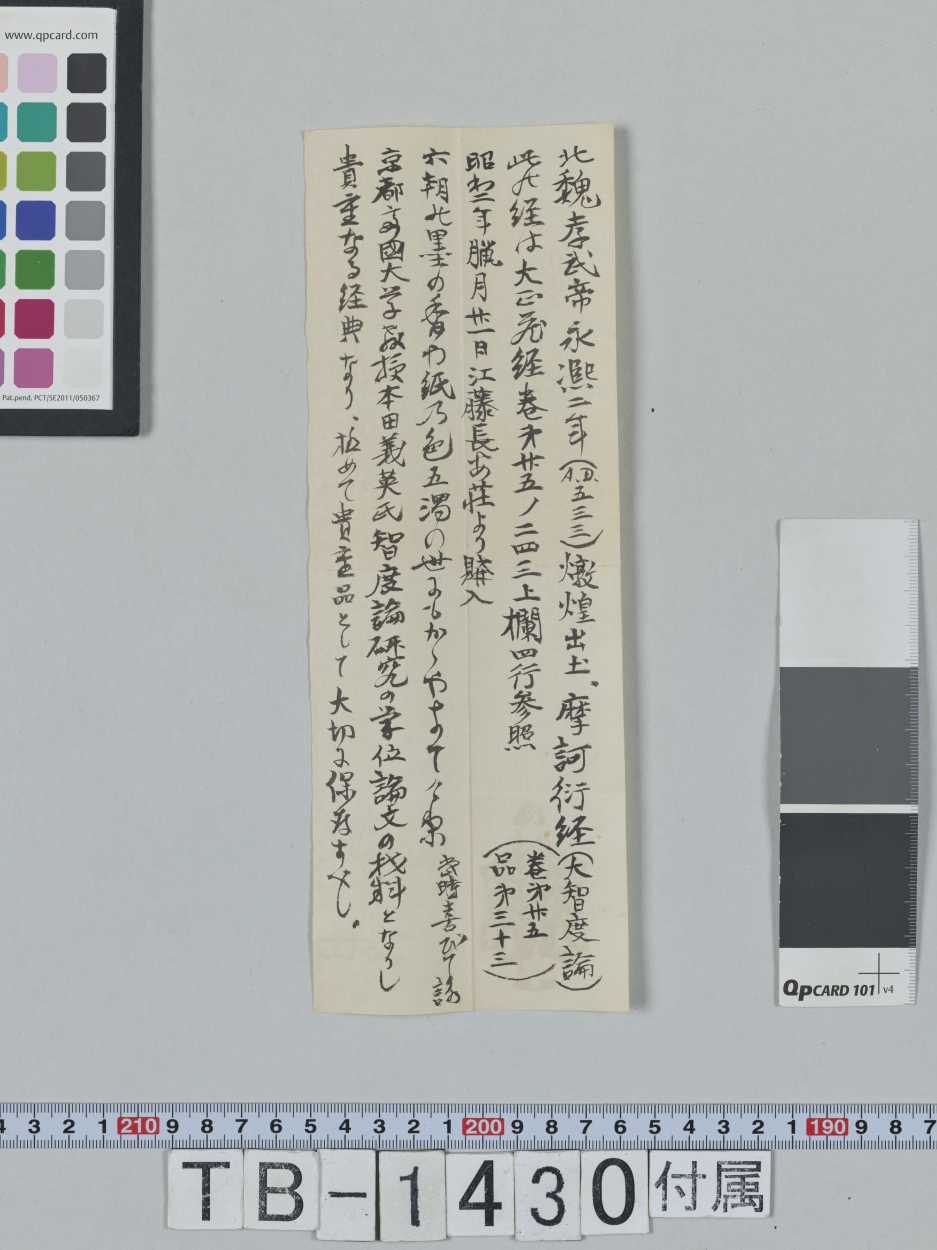 北魏孝武帝永熙二年(西五三三)燉煌出土、摩訶衍経(大智度論)
(卷第廿五
品第三十三)
此の経は大正蔵経卷第廿五ノ二四三上欄四行参照
昭和二年臘月廿一日江藤長安荘より購入
六朝の墨の香や紙乃色五濁の世にも
当時喜びて詠
京都帝國大学教授本田義英氏智度論研究の学位論文の材料となりし
貴重なる経典なり、極めて貴重品として大切に保存すべし。
www.qpcard.com
Pat.pend. PCT/SE2011/050367
QPCARD 101 v4
4 3 2 1 210 9 8 7 6 5 4 3 2 1 200 9 8 7 6 5 4 3 2 1 190 9 8 7
TB-1430付属